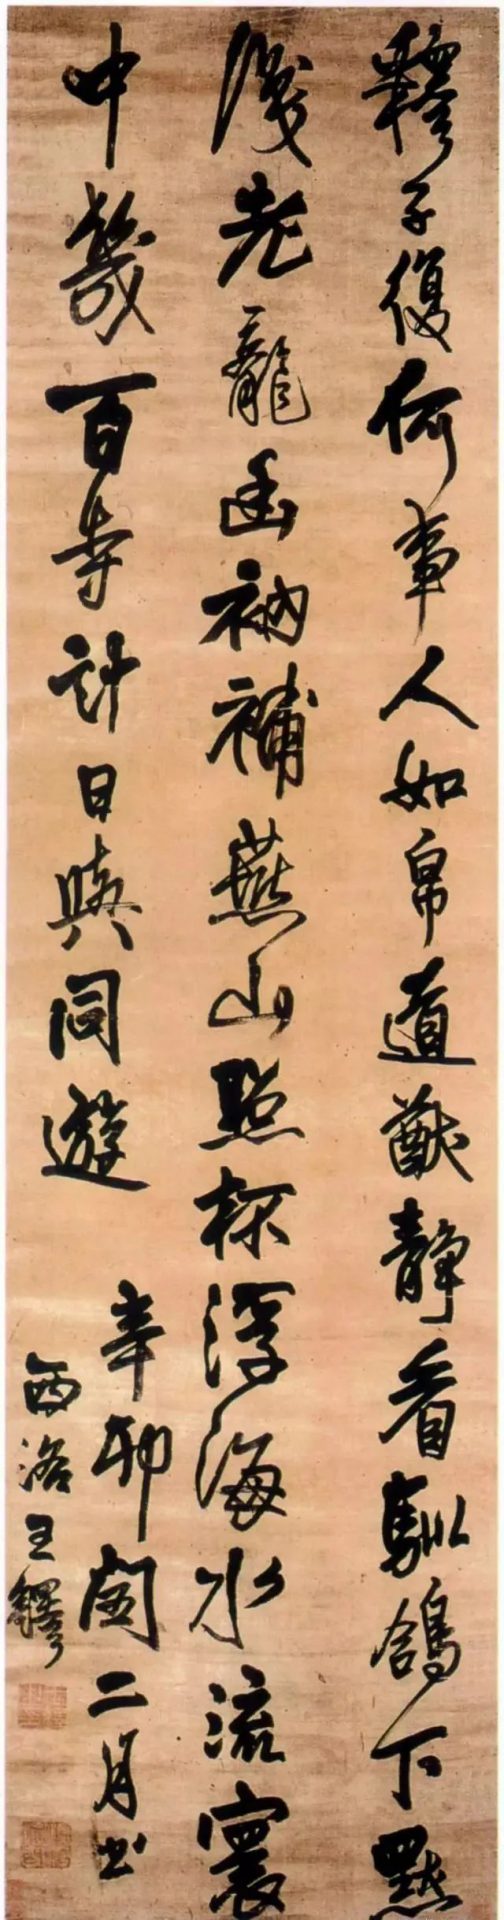 釋子復何事人如帛道猷靜看馴鴿下默
識老龍幽衲補燕山照杯浮海水流寰
中幾百寺計日與同遊
辛卯閏二月書
西洛王鐸